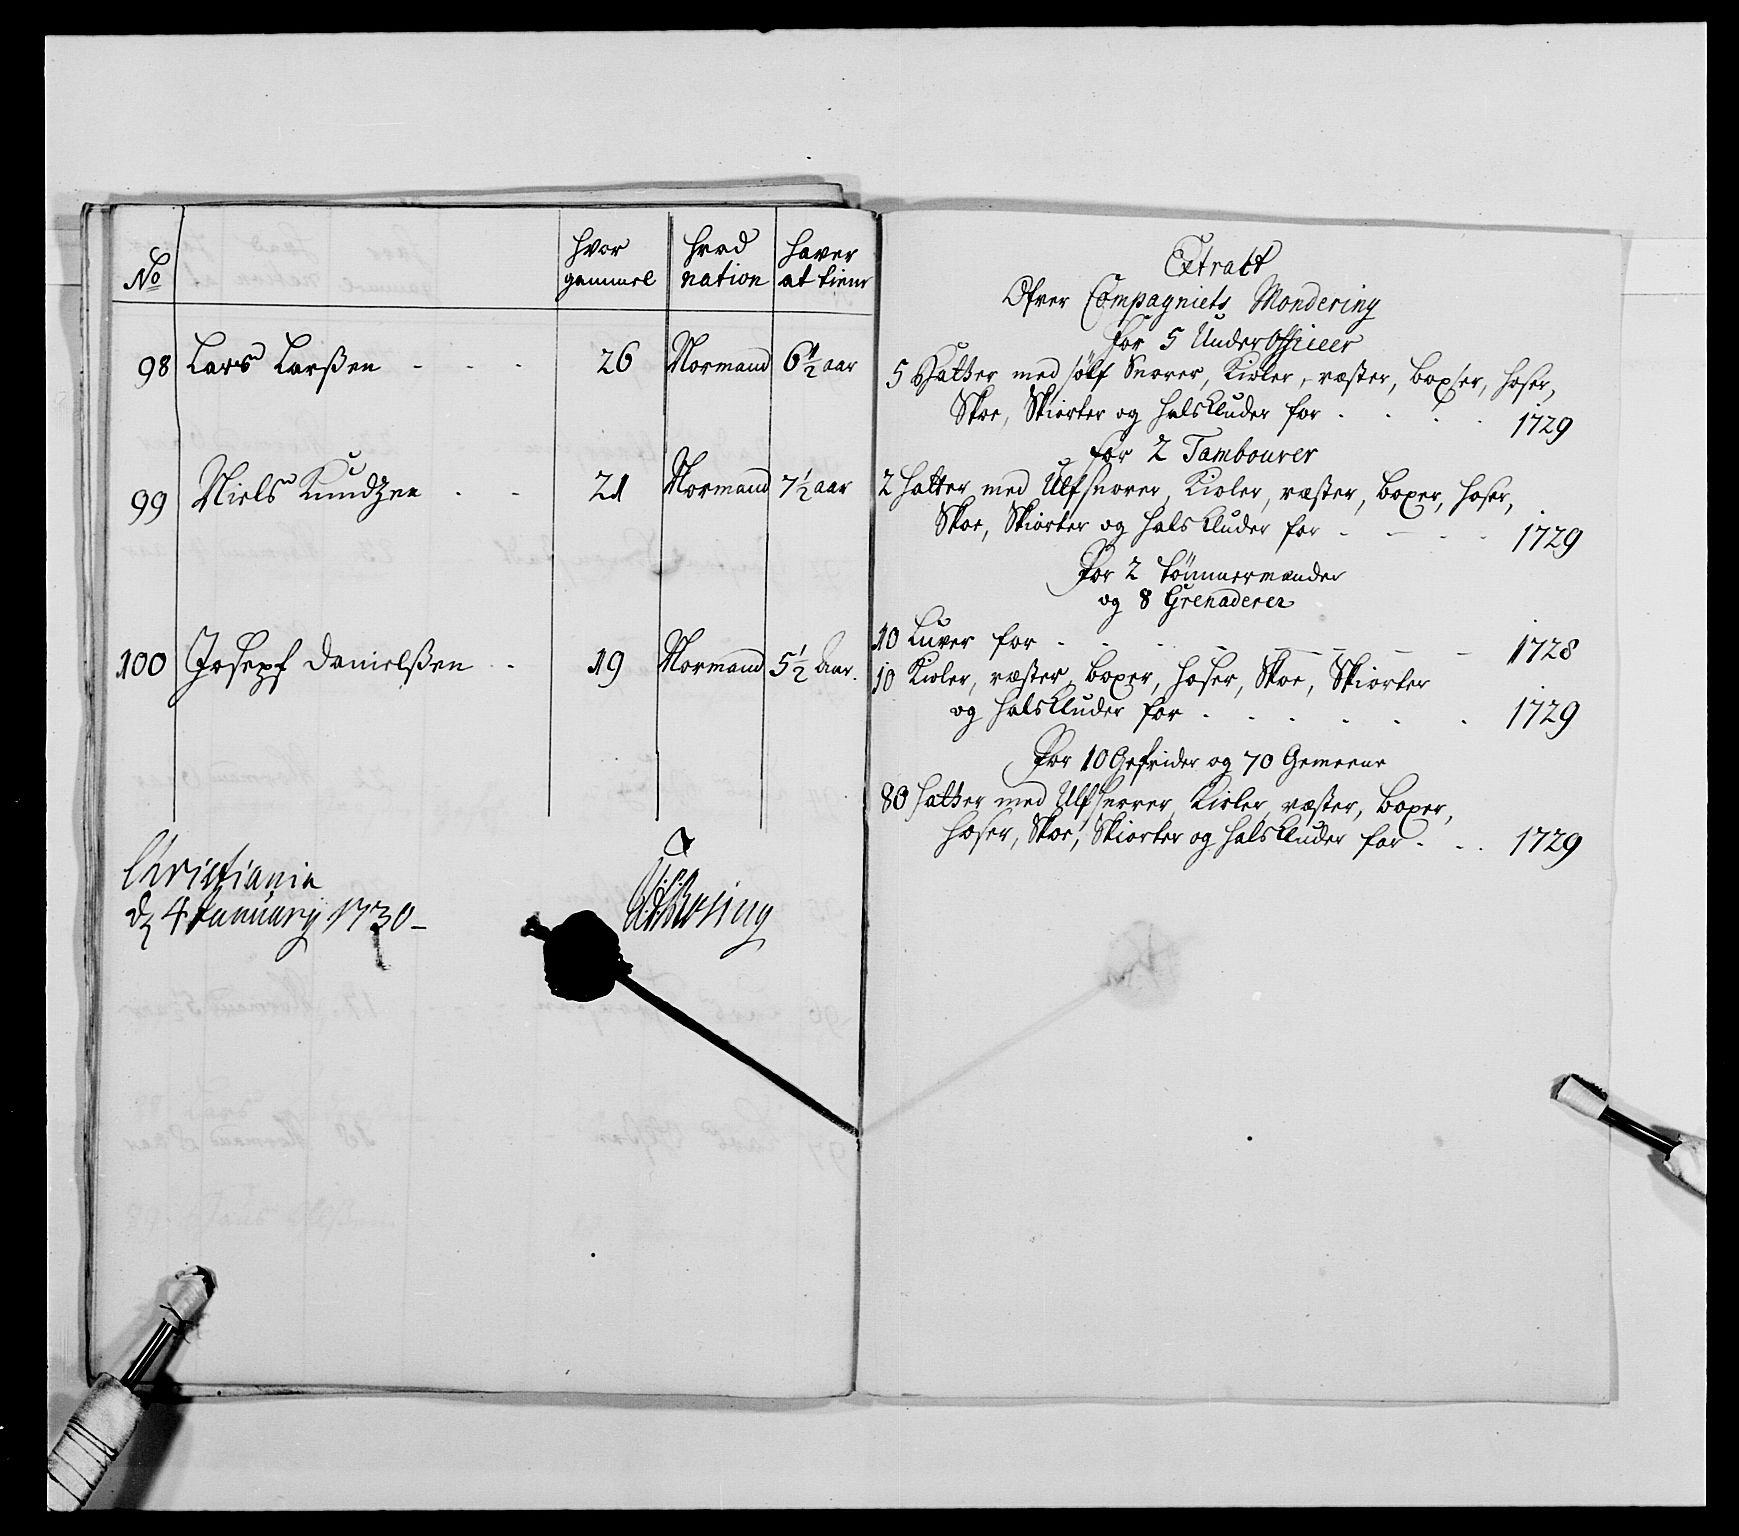 No
hvor
gammel
hvad
nation
haver
at tiene
98 Lars Larßen - - - 26 Normand 6 1/2 aar
99 Niels Knudzen - - 21 Normand 7 1/2 aar
100 Josepf Danielßen - - 19 Normand 5 1/2 Aar.
Christiania
d 4 January 1730 –
Extract
Ofver Compagniets Mondering
for 5 Underofficeer
5 Hatter med sølf Snorer, Kioler, væster, boxser, hoser,
Skoe, Skiorter og halskluder for - - - - 1729
for 2 Tambourer
2 hatter med Ulfsnorer, Kioler, væster, boxer, hoser,
Skoe, Skiorter og halskluder for - - - - 1729
For 2 tömmermænder
og 8 Grenaderer
10 Luver for - - - - - - - 1728
10 Kioler, væster, boxer, hoser, Skoe, Skiorter
og halskluder for - - - - - - 1729
For 10 Gefrider og 70 Gemeene
80 hatter med Ulfsnorer, Kioler, væster, boxer,
hoser, Skoe, Skiorter og halskluder for - - - 1729